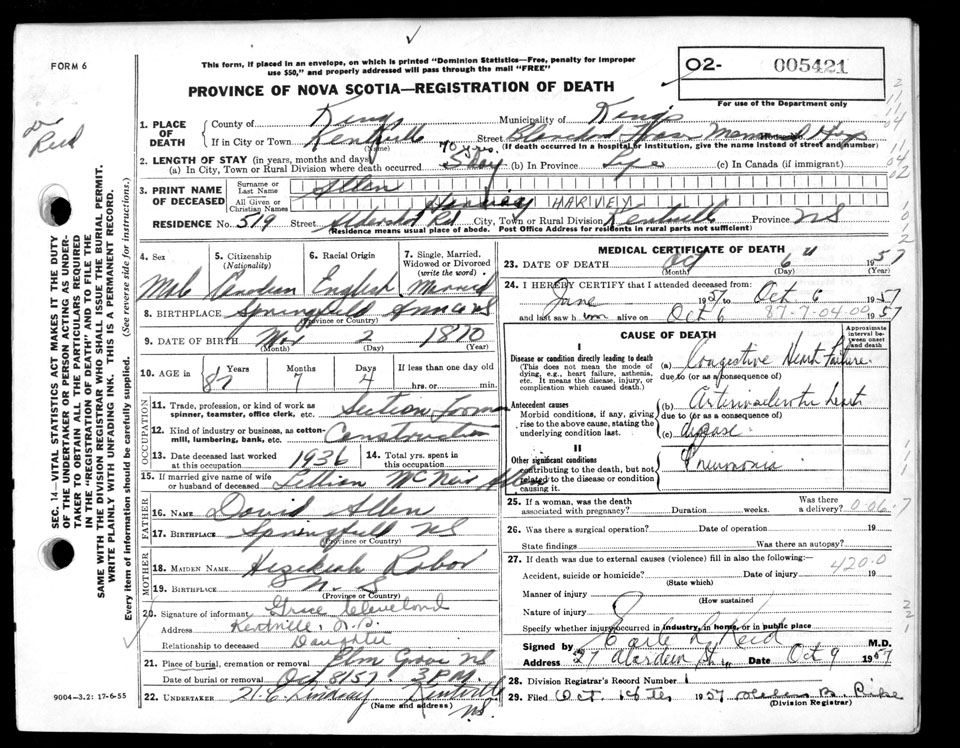 FORM 6
This form, if placed in an envelope, on which is printed "Dominion Statistics—Free, penalty for improper
use $50," and properly addressed will pass through the mail "FREE"
PROVINCE OF NOVA SCOTIA—REGISTRATION OF DEATH
02- 005421
For use of the Department only
1. PLACE OF DEATH County of Kings Municipality of Kings
If in City or Town Kentville Street Blanchard Fraser Hosp
(Name) (If death occurred in a hospital or institution, give the name instead of street and number)
2. LENGTH OF STAY (in years, months and days)
(a) In City, Town or Rural Division where death occurred 70 yrs. (b) In Province Life (c) In Canada (if immigrant)
3. PRINT NAME OF DECEASED Surname or Last Name Allen
All Given or Christian Names HARVEY
RESIDENCE No. 519 Street Aldershot Rd City, Town or Rural Division Kentville Province NS
(Residence means usual place of abode. Post Office Address for residents in rural parts not sufficient)
SEC. 14—VITAL STATISTICS ACT MAKES IT THE DUTY
OF THE UNDERTAKER OR PERSON ACTING AS UNDER-
TAKER TO OBTAIN ALL THE PARTICULARS REQUIRED
IN THE "REGISTRATION OF DEATH" AND TO FILE THE
SAME WITH THE DIVISION REGISTRAR WHO SHALL ISSUE THE BURIAL PERMIT.
WRITE PLAINLY WITH UNFADING INK. THIS IS A PERMANENT RECORD.
Every item of information should be carefully supplied. (See reverse side for instructions.)
4. Sex 5. Citizenship (Nationality) 6. Racial Origin 7. Single, Married, Widowed or Divorced (write the word)
Male Canadian English Married
8. BIRTHPLACE Springfield Anna Co NS
(Province or Country)
9. DATE OF BIRTH Mar 2 1870
(Month) (Day) (Year)
10. AGE in Years Months Days If less than one day old
87 7 4 hrs. or min.
OCCUPATION
11. Trade, profession, or kind of work as spinner, teamster, office clerk, etc. Section Foreman
12. Kind of industry or business, as cotton-mill, lumbering, bank, etc. Construction
13. Date deceased last worked at this occupation 1936 14. Total yrs. spent in this occupation
15. If married give name of wife or husband of deceased Lillian McNeir Allen
FATHER
16. NAME David Allen
17. BIRTHPLACE Springfield NS
(Province or Country)
MOTHER
18. MAIDEN NAME Hezekiah
19. BIRTHPLACE N.S
(Province or Country)
20. Signature of informant Grace Cleveland
Address Kentville, N.S.
Relationship to deceased Daughter
21. Place of burial, cremation or removal Elm Grove NS
Date of burial or removal Oct 8 1957 3 P.M.
22. UNDERTAKER Lindsay Kentville N.S.
(Name and address)
9004—3.2: 17-6-55
MEDICAL CERTIFICATE OF DEATH
23. DATE OF DEATH Oct 6" 1957
(Month) (Day) (Year)
24. I HEREBY CERTIFY that I attended deceased from
June 1957 to Oct 6 1957
and last saw him alive on Oct 6 1957
87-7-04-00
CAUSE OF DEATH
Approximate interval between onset and death
I
Disease or condition directly leading to death
(This does not mean the mode of dying, e.g., heart failure, asthenia, etc. It means the disease, injury, or complication which caused death.)
(a) Congestive Heart Failure
due to (or as a consequence of)
Antecedent causes
Morbid conditions, if any, giving rise to the above cause, stating the underlying condition last.
(b) Arteriosclerotic heart
due to (or as a consequence of)
(c) disease
II
Other significant conditions contributing to the death, but not related to the disease or condition causing it.
Pneumonia
25. If a woman, was the death associated with pregnancy? Duration weeks. Was there a delivery?
26. Was there a surgical operation? Date of operation 19
State findings Was there an autopsy?
27. If death was due to external causes (violence) fill in also the following:—
420.0
Accident, suicide or homicide? Date of injury 19
(State which)
Manner of injury
(How sustained)
Nature of injury
Specify whether injury occurred in industry, in home, or in public place
Signed by Earle Reid M.D.
Address 27 Aberdeen St Date Oct 9 1957
28. Division Registrar's Record Number 1
29. Filed Oct. 1957
(Division Registrar)